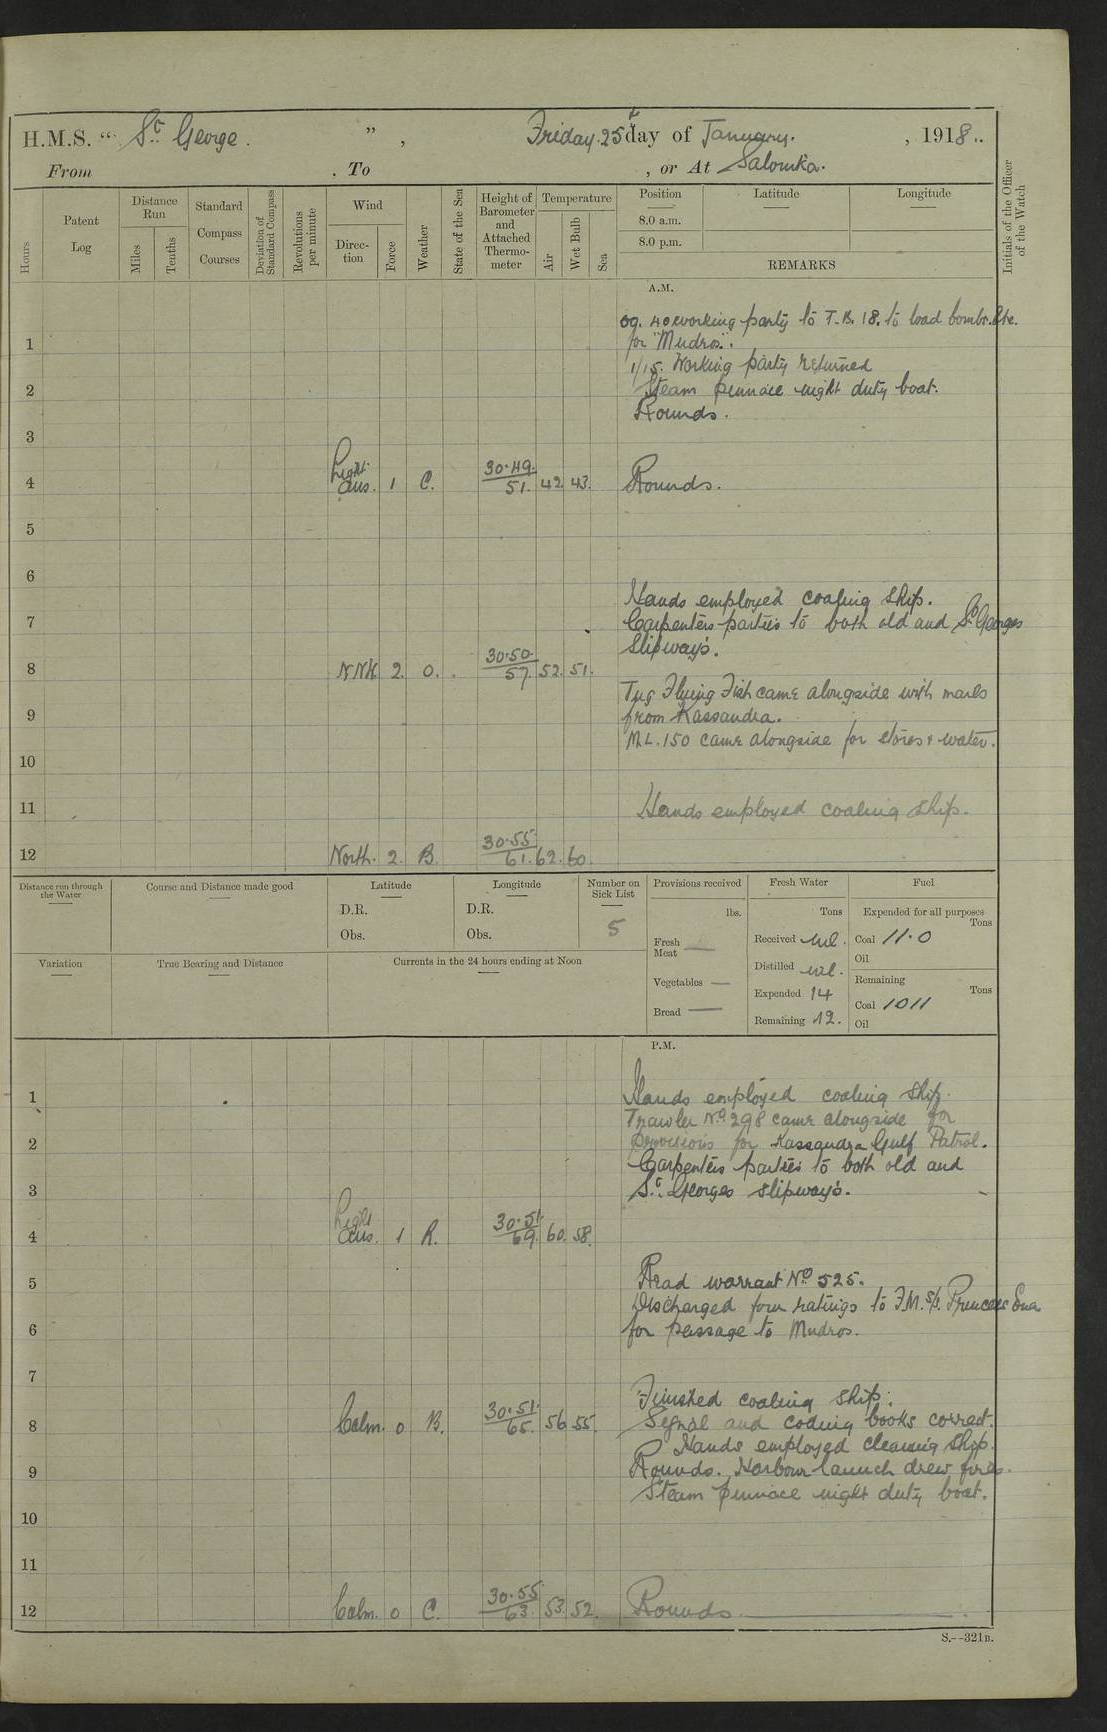 H.M.S. “ St George. ” , Friday 25th day of January. , 1918..
From . To , or At Salonika.
Hours
Patent Log
Distance Run
Miles
Tenths
Standard Compass Courses
Deviation of Standard Compass
Revolutions per minute
Wind
Direction
Force
Weather
State of the Sea
Height of Barometer and Attached Thermometer
Temperature
Air
Wet Bulb
Sea
Position Latitude Longitude
8.0 a.m.
8.0 p.m.
REMARKS
Initials of the Officer of the Watch
A.M.
working party to T.B. 18. to load bombs. &tc.
1 for "Mudros".
1/15. Working party returned
2 Steam pinnace night duty boat.
Rounds.
3
4 Light Airs. 1 C. 30.49. 51. 42. 43. Rounds.
5
6
Hands employed coaling ship.
7 Carpenters parties to both old and St Georges
Slipways.
8 NNW. 2. O. 30.50. 57. 52. 51.
Tug Flying Fish came alongside with mails
9 from Kassandra.
M.L. 150 came alongside for stores & water.
10
11 Hands employed coaling ship.
12 North. 2. B. 30.55 61. 62. 60.
Distance run through the Water
Course and Distance made good
Latitude
D.R.
Obs.
Longitude
D.R.
Obs.
Number on Sick List
5
Provisions received
lbs.
Fresh Meat —
Vegetables —
Bread —
Fresh Water
Tons
Received nil.
Distilled nil.
Expended 14
Remaining 12.
Fuel
Expended for all purposes
Tons
Coal 11.0
Oil
Remaining
Tons
Coal 1011
Oil
Variation
True Bearing and Distance
Currents in the 24 hours ending at Noon
P.M.
1 Hands employed coaling ship.
Trawler No 298 came alongside for
2 provisions for Kassandra Gulf Patrol.
Carpenters parties to both old and
3 St. Georges slipways.
4 Light Airs. 1 R. 30.51. 69. 60. 58.
5 Read warrant No 525.
Discharged four ratings to F.M. S/S. Princess Ena
6 for passage to Mudros.
7
Finished coaling ship.
8 Calm. 0 B. 30.51. 65. 56 55. Signal and coding books correct.
Hands employed cleaning ship.
9 Rounds. Harbour launch drew fires.
Steam pinnace night duty boat.
10
11
12 Calm. 0 C. 30.55 63. 53. 52. Rounds
S.--321B.